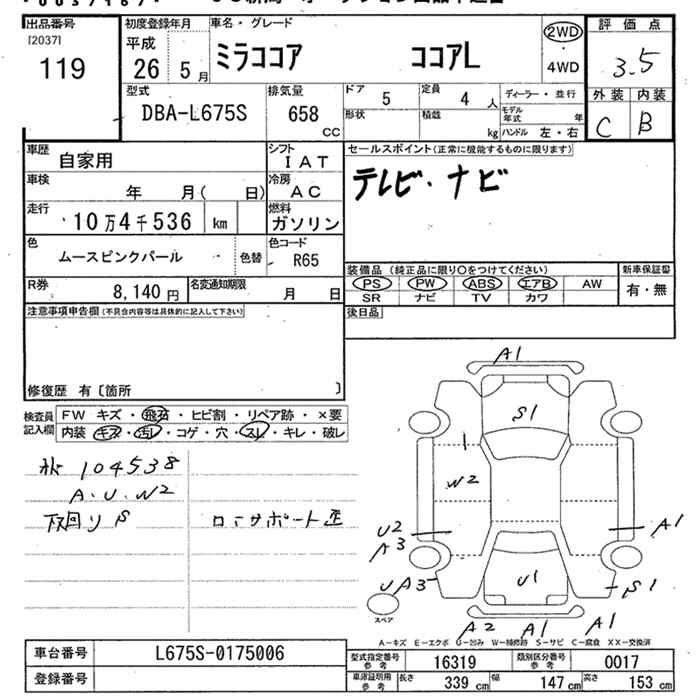 出品番号
[2037]
119
初度登録年月
平成
26 5月
車名・グレード
ミラココア ココアL
2WD
・
4WD
評価点
3.5
外装 内装
C B
型式
DBA-L675S
排気量
658
CC
ドア
5
定員
4人
形状
積載
kg
ディーラー・並行
モデル年式 年
ハンドル 左・右
車歴
自家用
シフト
IAT
車検
年 月( 日)
冷房
AC
走行
10万4千536 km
燃料
ガソリン
色
ムースピンクパール
色替
色コード
R65
R券
8,140円
名変通知期限
月 日
セールスポイント(正常に機能するものに限ります)
テレビ・ナビ
装備品 (純正品に限り○をつけてください)
新車保証書
PS PW ABS エアB AW
SR ナビ TV カワ
有・無
後日品
注意事項申告欄(不具合内容等は具体的に記入して下さい)
修復歴 有〔箇所 〕
検査員
記入欄
FW キズ・飛石・ヒビ割・リペア跡・×要
内装 キズ・汚レ・コゲ・穴・スレ・キレ・破レ
104538
A.U.W2
下回リS
コアサポート歪
A1
S1
W2
U2
A3
A1
UA3
U1
S1
スペア
A2 A1 A1
A-キズ E-エクボ U-凹み W-補修跡 S-サビ C-腐食 XX-交換済
車台番号
L675S-0175006
登録番号
型式指定番号
参考
16319
類別区分番号
参考
0017
車庫証明用
参考
長さ 339cm 幅 147cm 高さ 153cm